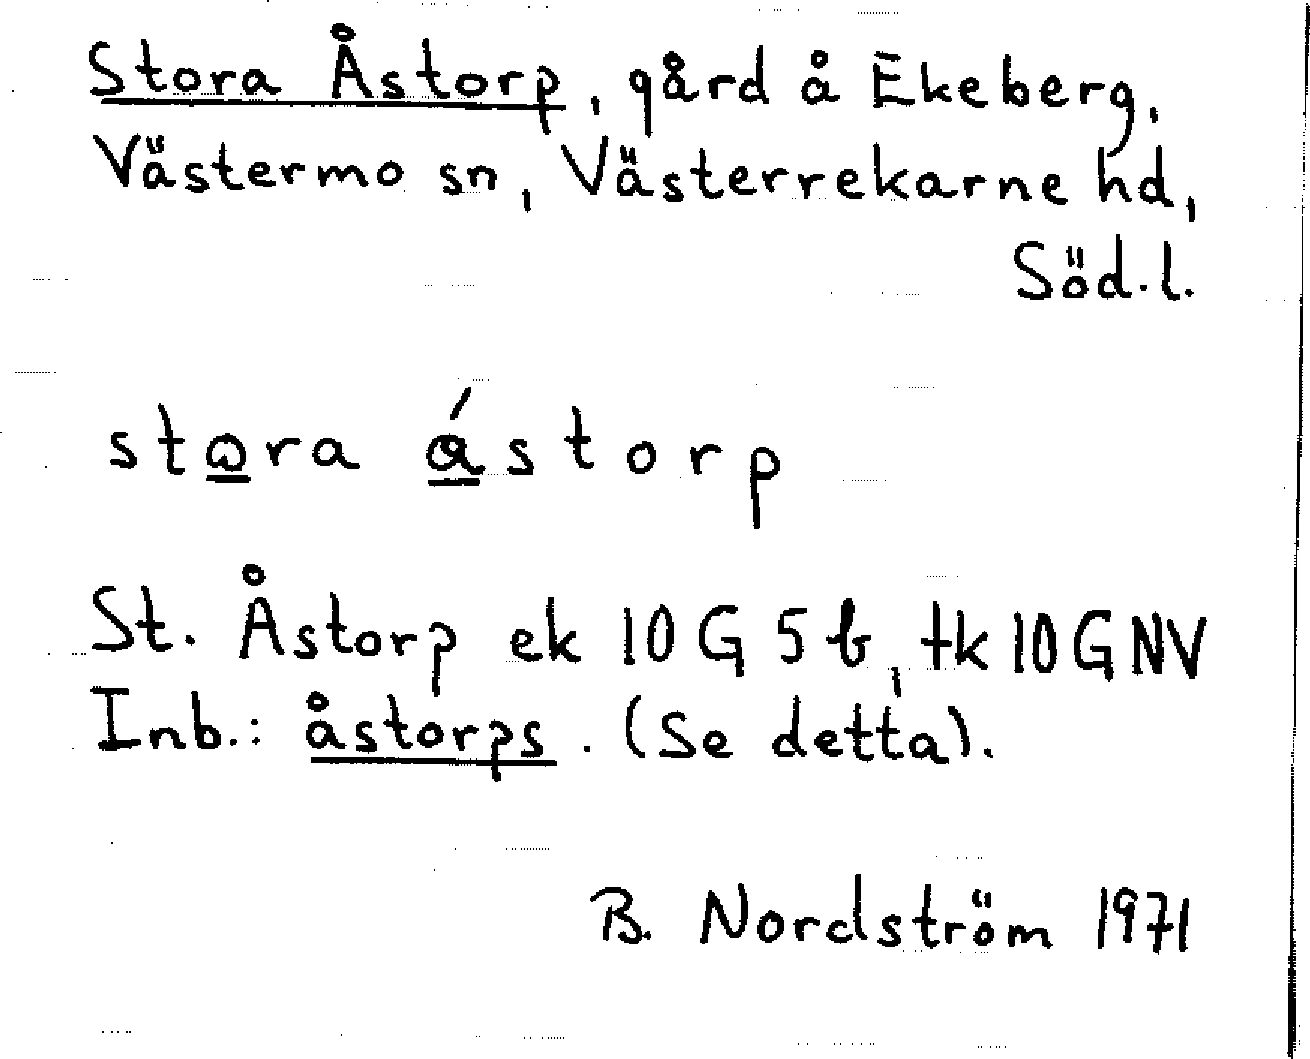 Stora Åstorp, gård å Ekeberg,
Västermo sn, Västerrekarne hd,
Söd.l.
stora ástorp
St. Åstorp ek 10 G 5 b, tk 10 G NV
Inb.: åstorps. (Se detta).
B. Nordström 1971